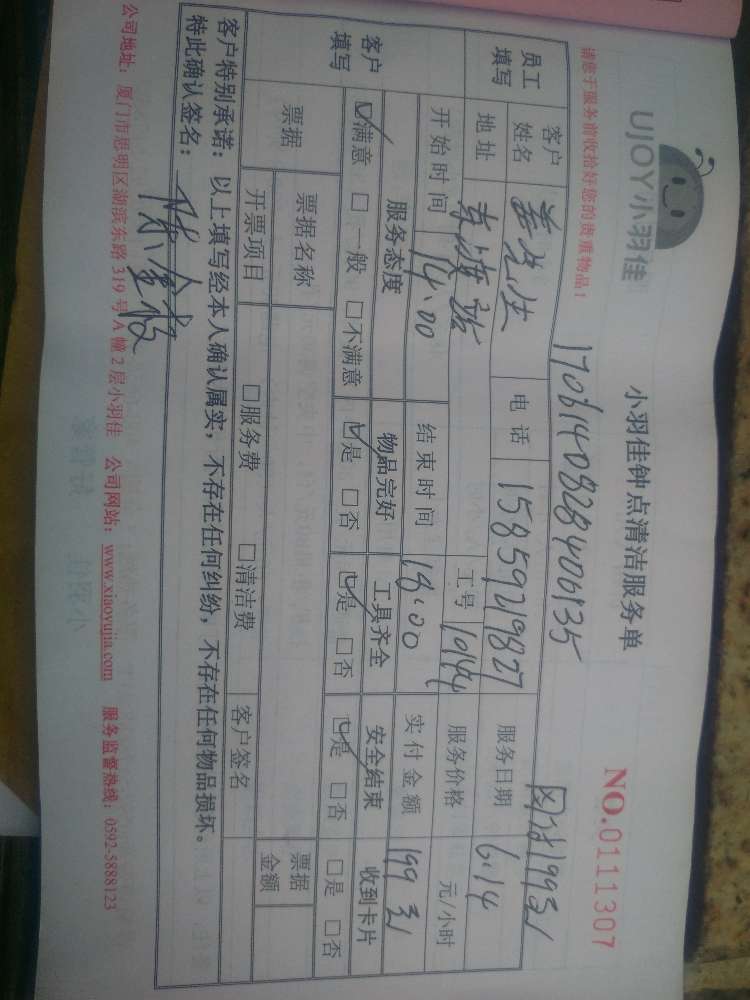 UJOY小羽佳
小羽佳钟点清洁服务单
NO.0111307
请您于服务前收拾好您的贵重物品！
1706140828406135
网付199元
员工填写
客户姓名
电话 15859219827
服务日期 6.14
地址
工号 1014
服务价格 元/小时
开始时间 14:00
结束时间 18:00
实付金额 199元
客户填写
服务态度 物品完好 工具齐全 安全结束 收到卡片
☑满意 □一般 □不满意 ☑是 □否 ☑是 □否 ☑是 □否 □是 □否
票据 票据名称
开票项目 □服务费 □清洁费 客户签名 票据金额
客户特别承诺：以上填写经本人确认属实，不存在任何纠纷，不存在任何物品损坏。
特此确认签名：
公司地址：厦门市思明区湖滨东路319号A幢2层小羽佳 公司网站：www.xiaoyujia.com 服务监督热线：0592-5888123